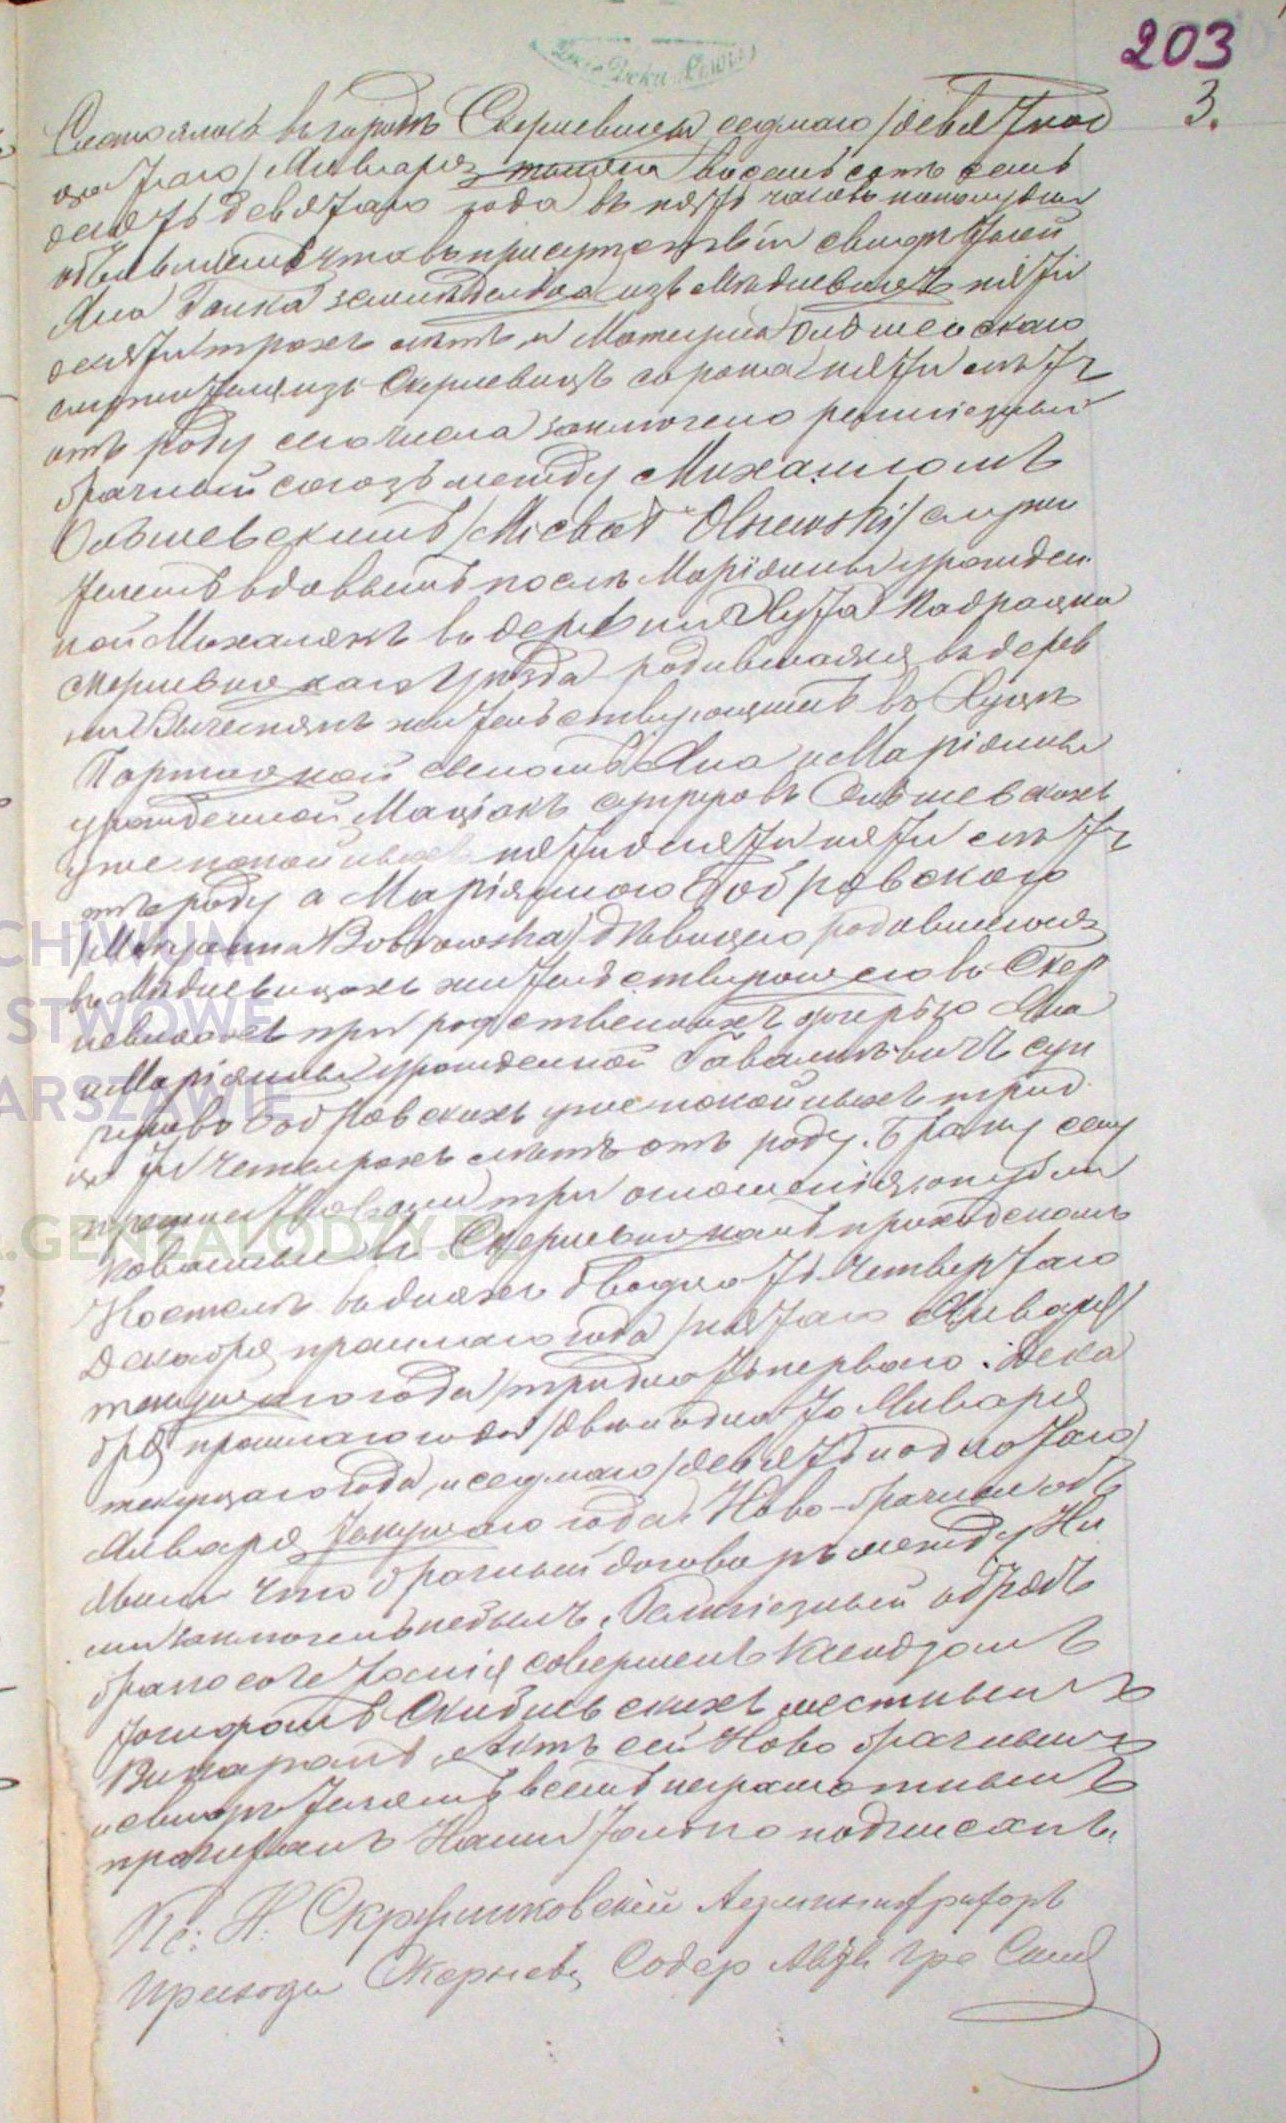 203
3.
Состоялось въ городѣ Скерневицахъ седмаго /девятнад
цатаго/ Января тысяча восемь сотъ семь
десятъ девятаго года въ пять часовъ пополудни
объявляемъ что въ присутствіи свидѣтелей
Яна земледѣльца изъ Мѣдневицъ пяти
десяти трехъ лѣтъ и Матеуша Ольшевскаго
служителя изъ Скерневицъ сорока пяти лѣтъ
отъ роду сего числа заключено религіозный
брачный союзъ между Михаиломъ
Ольшевскимъ /Michał Olszewski/ служи
телемъ вдовцемъ послѣ Маріянны урожден
ной Михалякъ въ деревни Хута
Скерневицкаго уѣзда родившаяся въ дерев
ни жительствующимъ въ Хуцѣ
сыномъ Яна и Маріянны
урожденной Маціакъ супруговъ Ольшевскихъ
уже покойныхъ пятидесяти пяти лѣтъ
отъ роду а Маріянною Бобровскою
/Maryanna Bobrowska/ дѣвицею родившеюся
въ Мѣдневицахъ жительствующею въ Скер
невицахъ при родственникахъ дочерью Яна
и Маріянны урожденной супру
говъ Бобровскихъ уже покойныхъ трид
цати четырехъ лѣтъ отъ роду. Браку сему
предшествовали три оглашенія опубли
кованныя въ Скерневицкомъ приходскомъ
Костелѣ въ дняхъ двадцать четвертаго
Декабря прошлаго года /пятаго Января/
текущаго года, тридцать перваго Дека
бря прошлаго года /двенадцатаго Января
текущаго года, и седмаго /девятнадцатаго/
Января текущаго года. Ново-брачные объ
явили что брачный договоръ между Ни
ми заключенъ небылъ. Религіозный обрядъ
бракосочетанія совершенъ Ксендзомъ
Іосифомъ мѣстнымъ
Викаромъ. Актъ сей Ново брачнымъ
и свидѣтелямъ всемъ неграмотнымъ
прочитанъ Нами только подписанъ.
Кс: Н. Администраторъ
прихода Скерневц Содер Акты Гра Сост
CHIWUM
STWOWE
ARSZAWIE
.GENEALODZY.PL